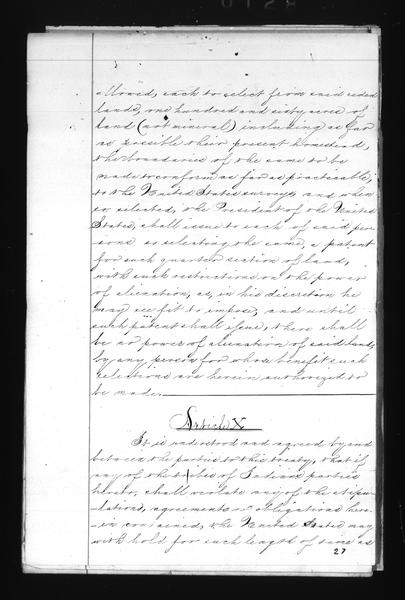 allowed, each to select from said ceded
lands, one hundred and sixty acres of
land (not mineral) including as far
as possible their present homestead,
the boundaries of the same to be
made to conform as far as practicable,
to the United States surveys; and when
so selected, the President of the United
States, shall issue to each of said per-
sons so selecting the same, a patent
for such quarter section of land,
with such restrictions on the power
of alienation, as, in his discretion he
may see fit to impose; and until
such patent shall issue, there shall
be no power of alienation of said land,
by any person for whose benefit such
selections are herein authorized to
be made.
Article X
It is understood and agreed by and
between the parties to this treaty, that if
any of the tribes of Indians parties
hereto, shall violate any of the stipu-
lations, agreements or obligations here-
in contained, the United States may
with hold for such length of time as
27